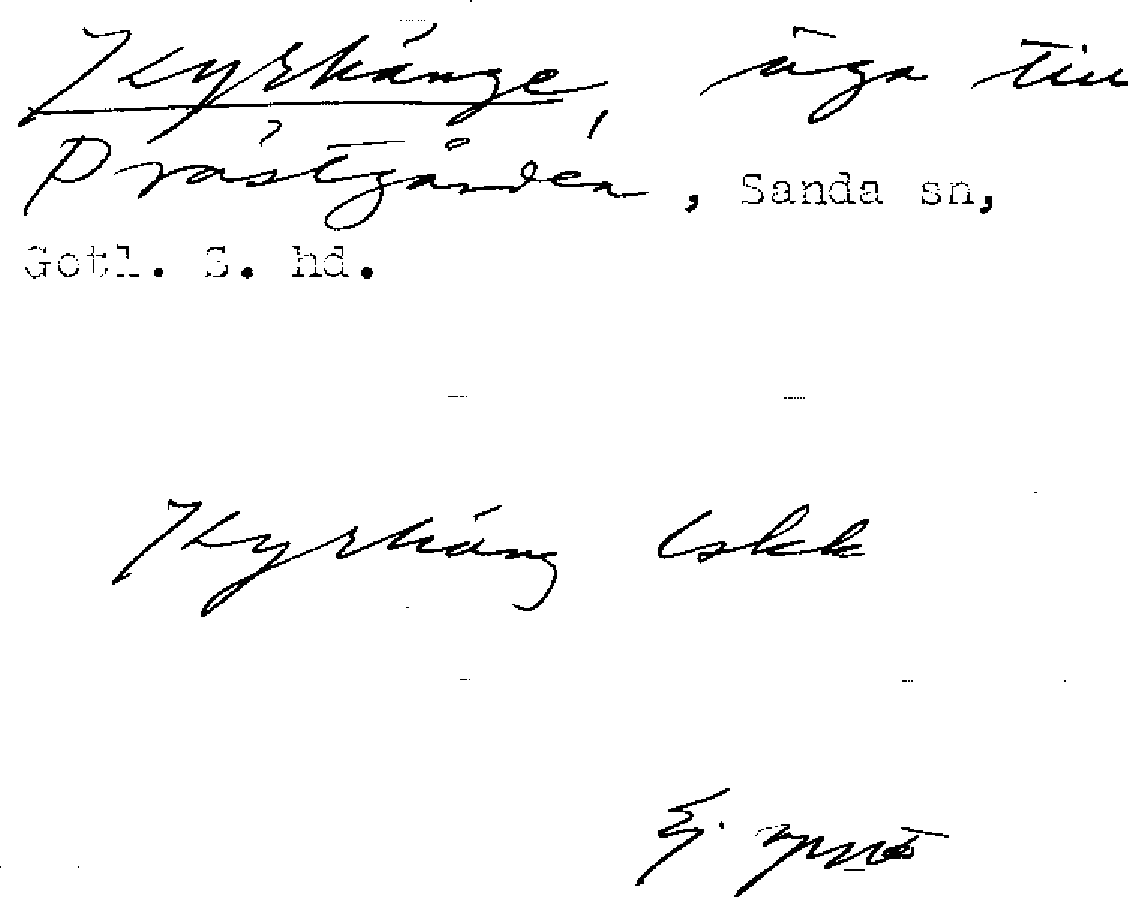 Kyrkänge, äga till
Prästgården, Sanda sn,
Gotl. S. hd.
Kyrkäng Lskk
Ej